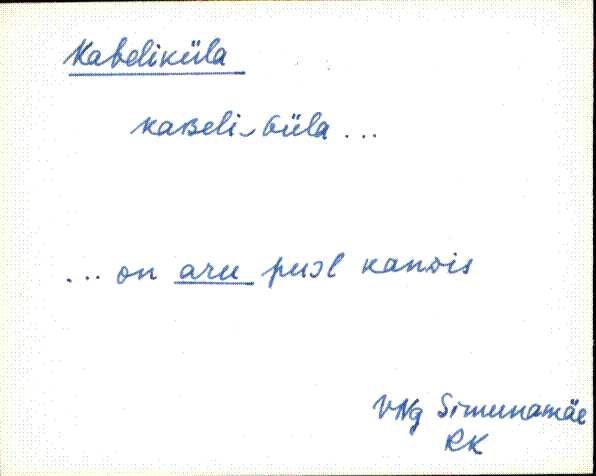 Kabeliküla
kaʙeli-Güla ...
... on aru puɔl kanɔis
VNg Simunamäe
RK